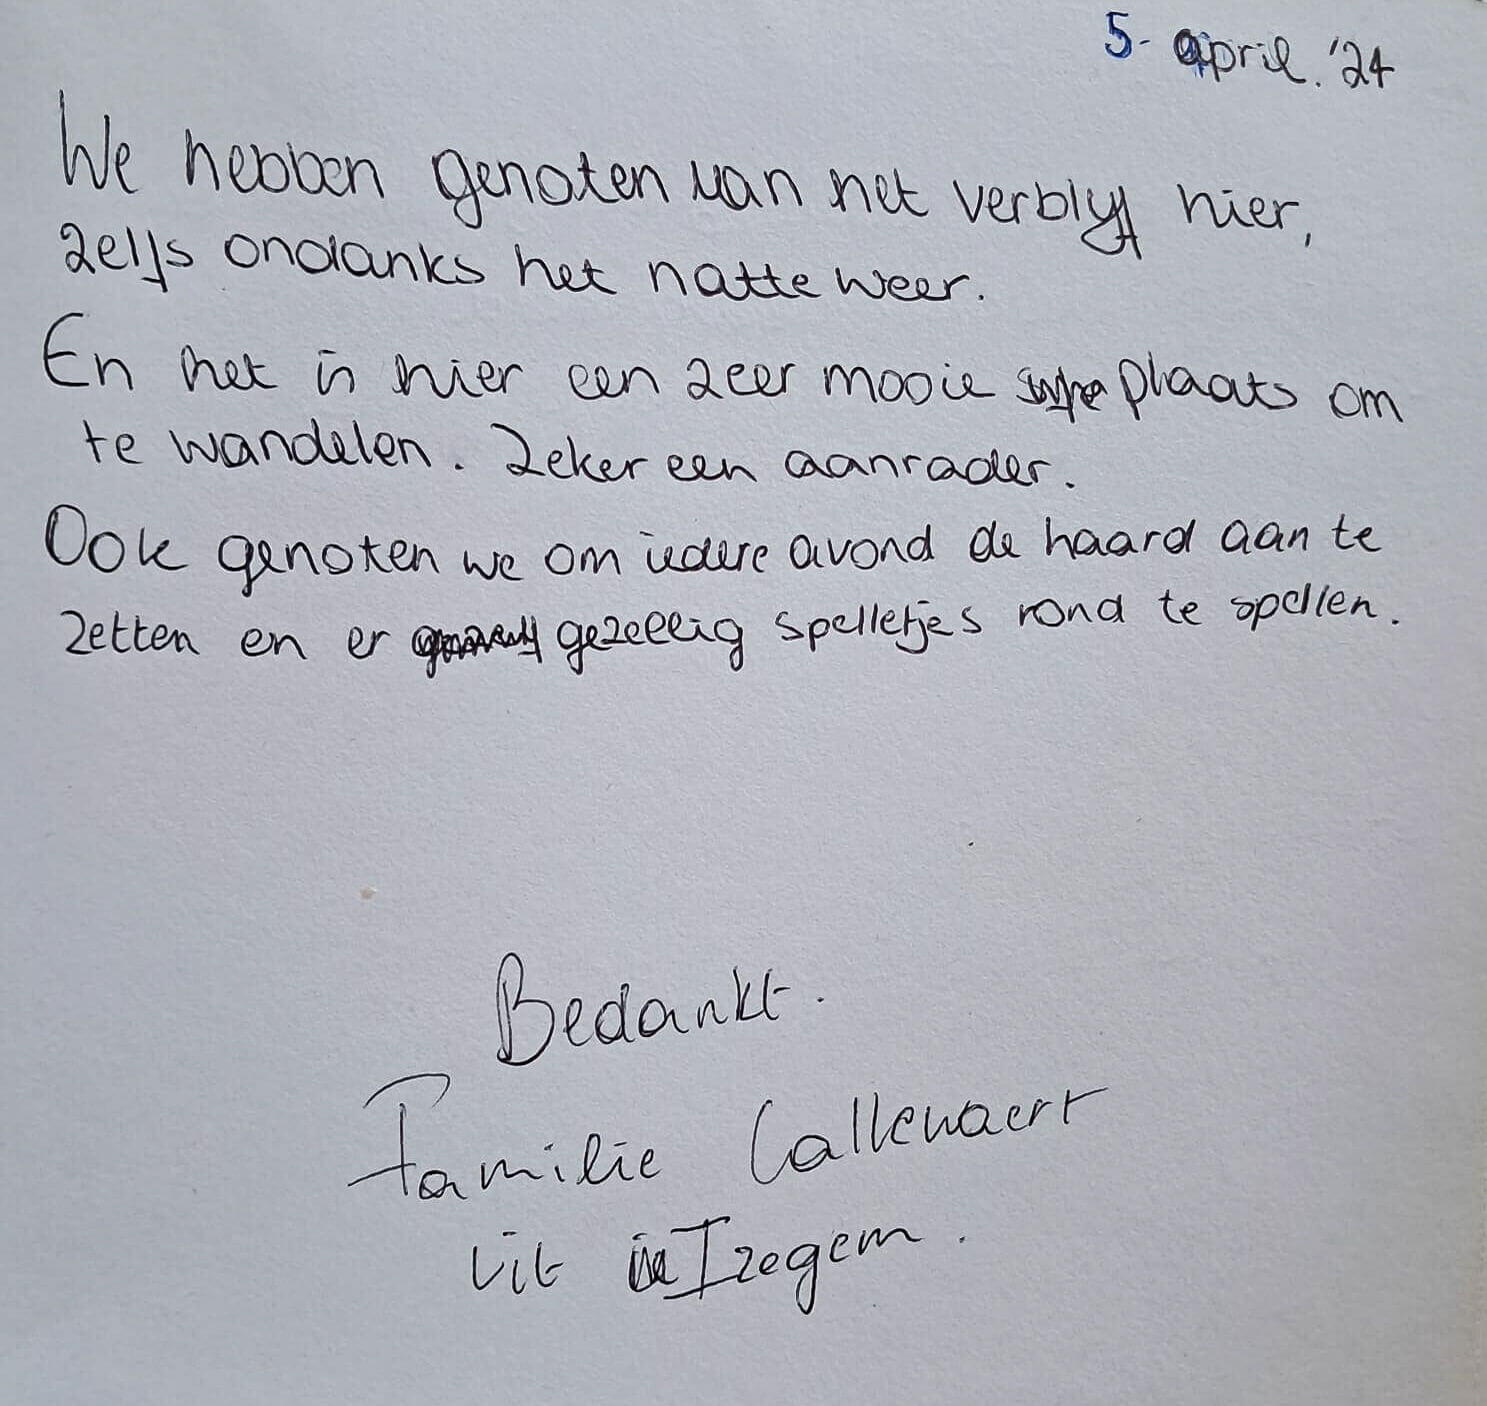 5- april. '24
We hebben genoten van het verblijf hier,
zelfs ondanks het natte weer.
En het is hier een zeer mooie plaats om
te wandelen. Zeker een aanrader.
Ook genoten we om iedere avond de haard aan te
zetten en er gezellig spelletjes rond te spellen.
Bedankt.
Familie Callewaert
uit Izegem.